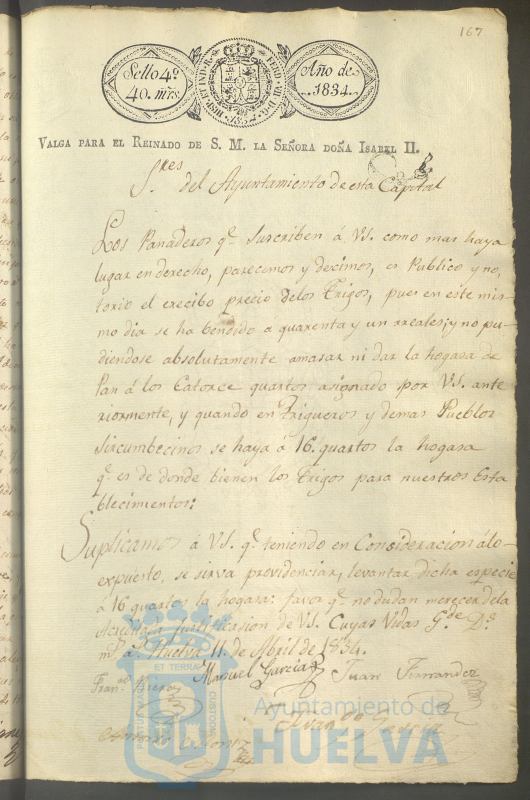 167
Sello 4º
40. mrs.
HISP. ET IND. R. FERD. VII. D. G.
1834.
Año de
1834.
VALGA PARA EL REINADO DE S. M. LA SEÑORA DOÑA ISABEL II.
S.res del Ayuntamiento de esta Capital
Los Panaderos q.e Suscriben á VS. como mas haya
lugar en derecho, parecemos y decimos, es Publico y no,
torio el execibo precio delos Trigos, pues en este mis-
mo dia se ha bendido a quarenta y un rreales; y no pu-
diendose absolutamente amasar ni dar la hogasa de
Pan á los Catorce quartos asignado por VS. ante
riormente, y quando en Trigueros y demas Pueblos
Sircumbecinos se haya á 16. quartos la hogasa
q.e es de donde bienen los Trigos para nuestros Esta
blecimientos:
Suplicamos á VS. q.e teniendo en Consideracion álo
expuesto, se sirva providenciar, levantar dicha especie
á 16 quartos la hogasa: favor q.e no dudan merecer dela
Acreditada Justificasion de VS. Cuyas Vidas G.de D.s
m.s a.s Huelva 11. de Abril de 1834.
Manuel Garcia Juan Fernandez
Fran.co
Garcia
Ayuntamiento de
HUELVA
PORTUS MARIS ET TERRAE CUSTODIA